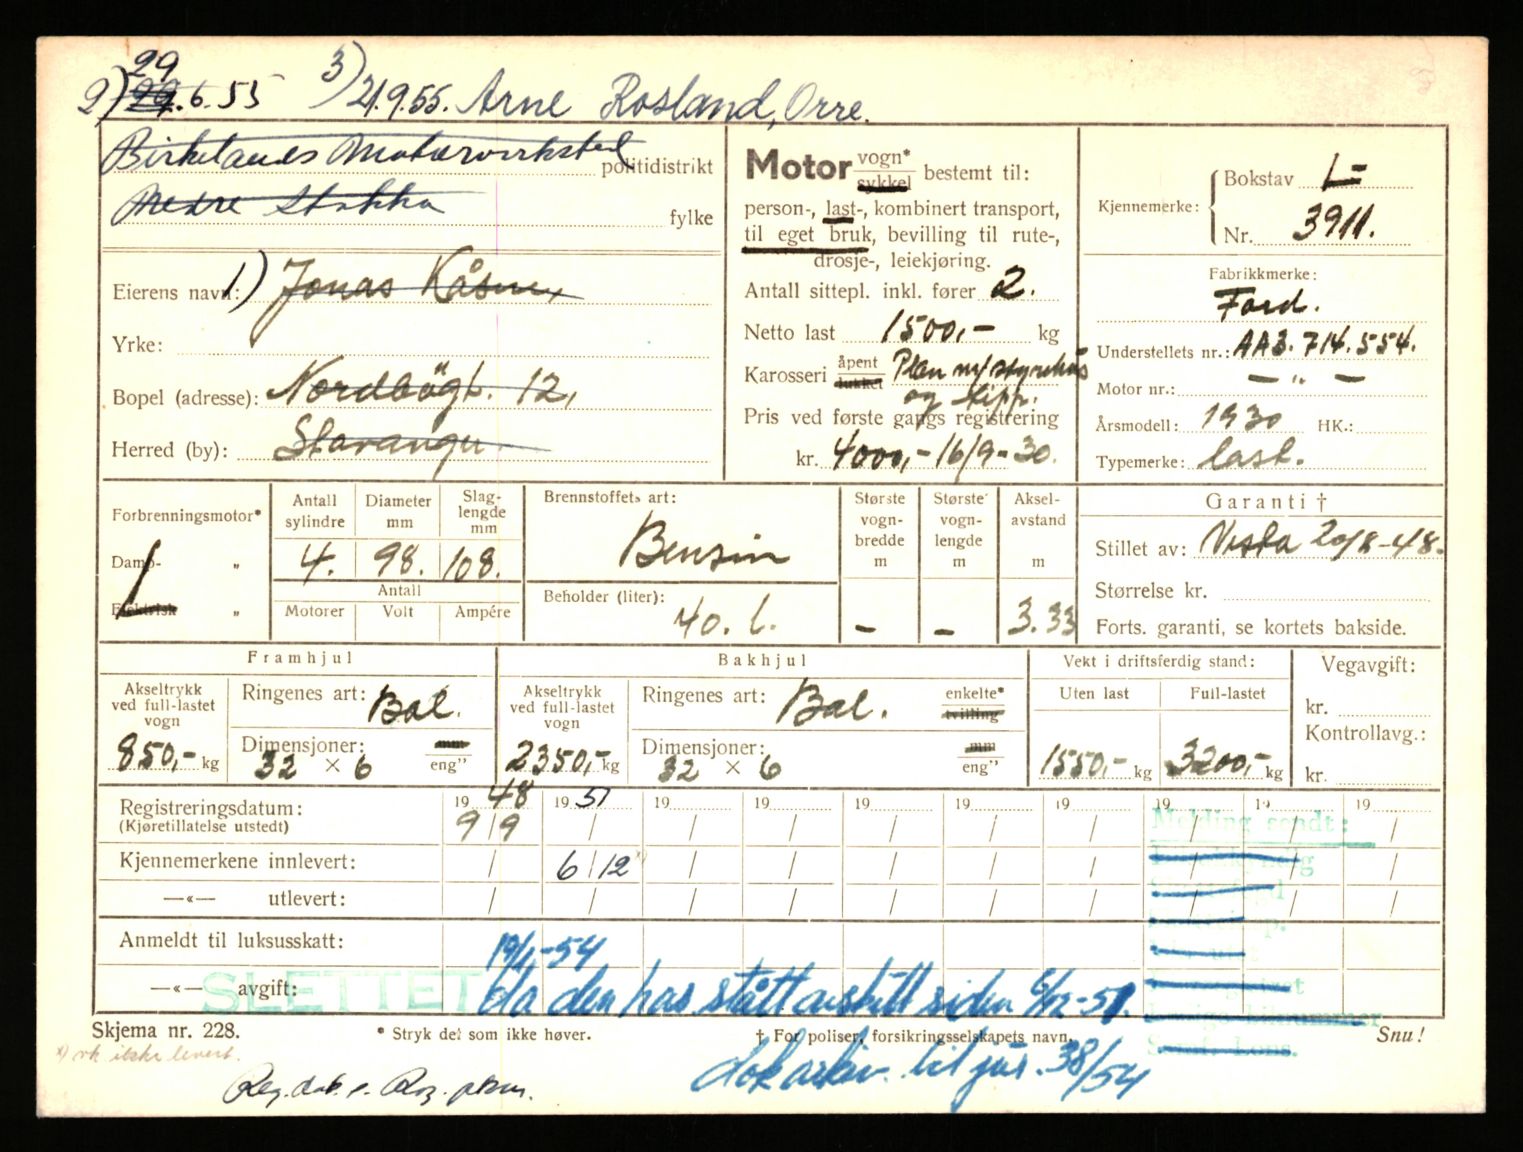 2) 29.6.55 3) 21.9.55. Arne Rosland, Orre.
Birkelands Motorverksted politidistrikt
Nedre Stokka fylke
1) Eierens navn: Jonas Kåsen
Yrke:
Bopel (adresse): Nordbögt. 12,
Herred (by): Stavanger
Motor vogn* sykkel bestemt til:
person-, last-, kombinert transport,
til eget bruk, bevilling til rute-,
drosje-, leiekjøring.
Antall sittepl. inkl. fører 2.
Netto last 1500,- kg
Karosseri åpent lukket Plan m/styrehus
og tipp.
Pris ved første gangs registrering
kr. 4000,- 16/9-30.
Kjennemerke: Bokstav L-
Nr. 3911.
Fabrikkmerke:
Ford.
Understellets nr.: AAB. 714.554.
Motor nr.: — „ —
Årsmodell: 1930 HK.:
Typemerke: last.
Forbrenningsmotor*
Damp- „
Elektrisk „
Antall sylindre Diameter mm Slag-lengde mm
4. 98. 108.
Antall
Motorer Volt Ampére
Brennstoffets art:
Bensin
Beholder (liter):
40. l.
Største vogn-bredde m Største vogn-lengde m Aksel-avstand m
- - 3.33
Garanti †
Stillet av: Vesta 20/8-48.
Størrelse kr.
Forts. garanti, se kortets bakside.
Framhjul
Akseltrykk ved full-lastet vogn
850,- kg
Ringenes art: Bal.
Dimensjoner: mm
32 × 6 eng"
Bakhjul
Akseltrykk ved full-lastet vogn
2350,- kg
Ringenes art: Bal. enkelte* tvilling
Dimensjoner: mm
32 × 6 eng"
Vekt i driftsferdig stand:
Uten last Full-lastet
1550,- kg 3200,- kg
Vegavgift:
kr.
Kontrollavg.:
kr.
Registreringsdatum: 19 48 19 51 19 19 19 19 19 19 19 19
(Kjøretillatelse utstedt) 9/9 / / / / / / / / /
Kjennemerkene innlevert: 6/12 x)
—«— utlevert:
Anmeldt til luksusskatt: 19/1-54
—«— avgift: da den har stått avskilt siden 6/12-51.
SLETTET
Melding sendt:
Skjema nr. 228. * Stryk det som ikke høver. † For poliser, forsikringsselskapets navn. Snu!
x) vk. ikke levert.
dok arkiv. til jur. 38/54